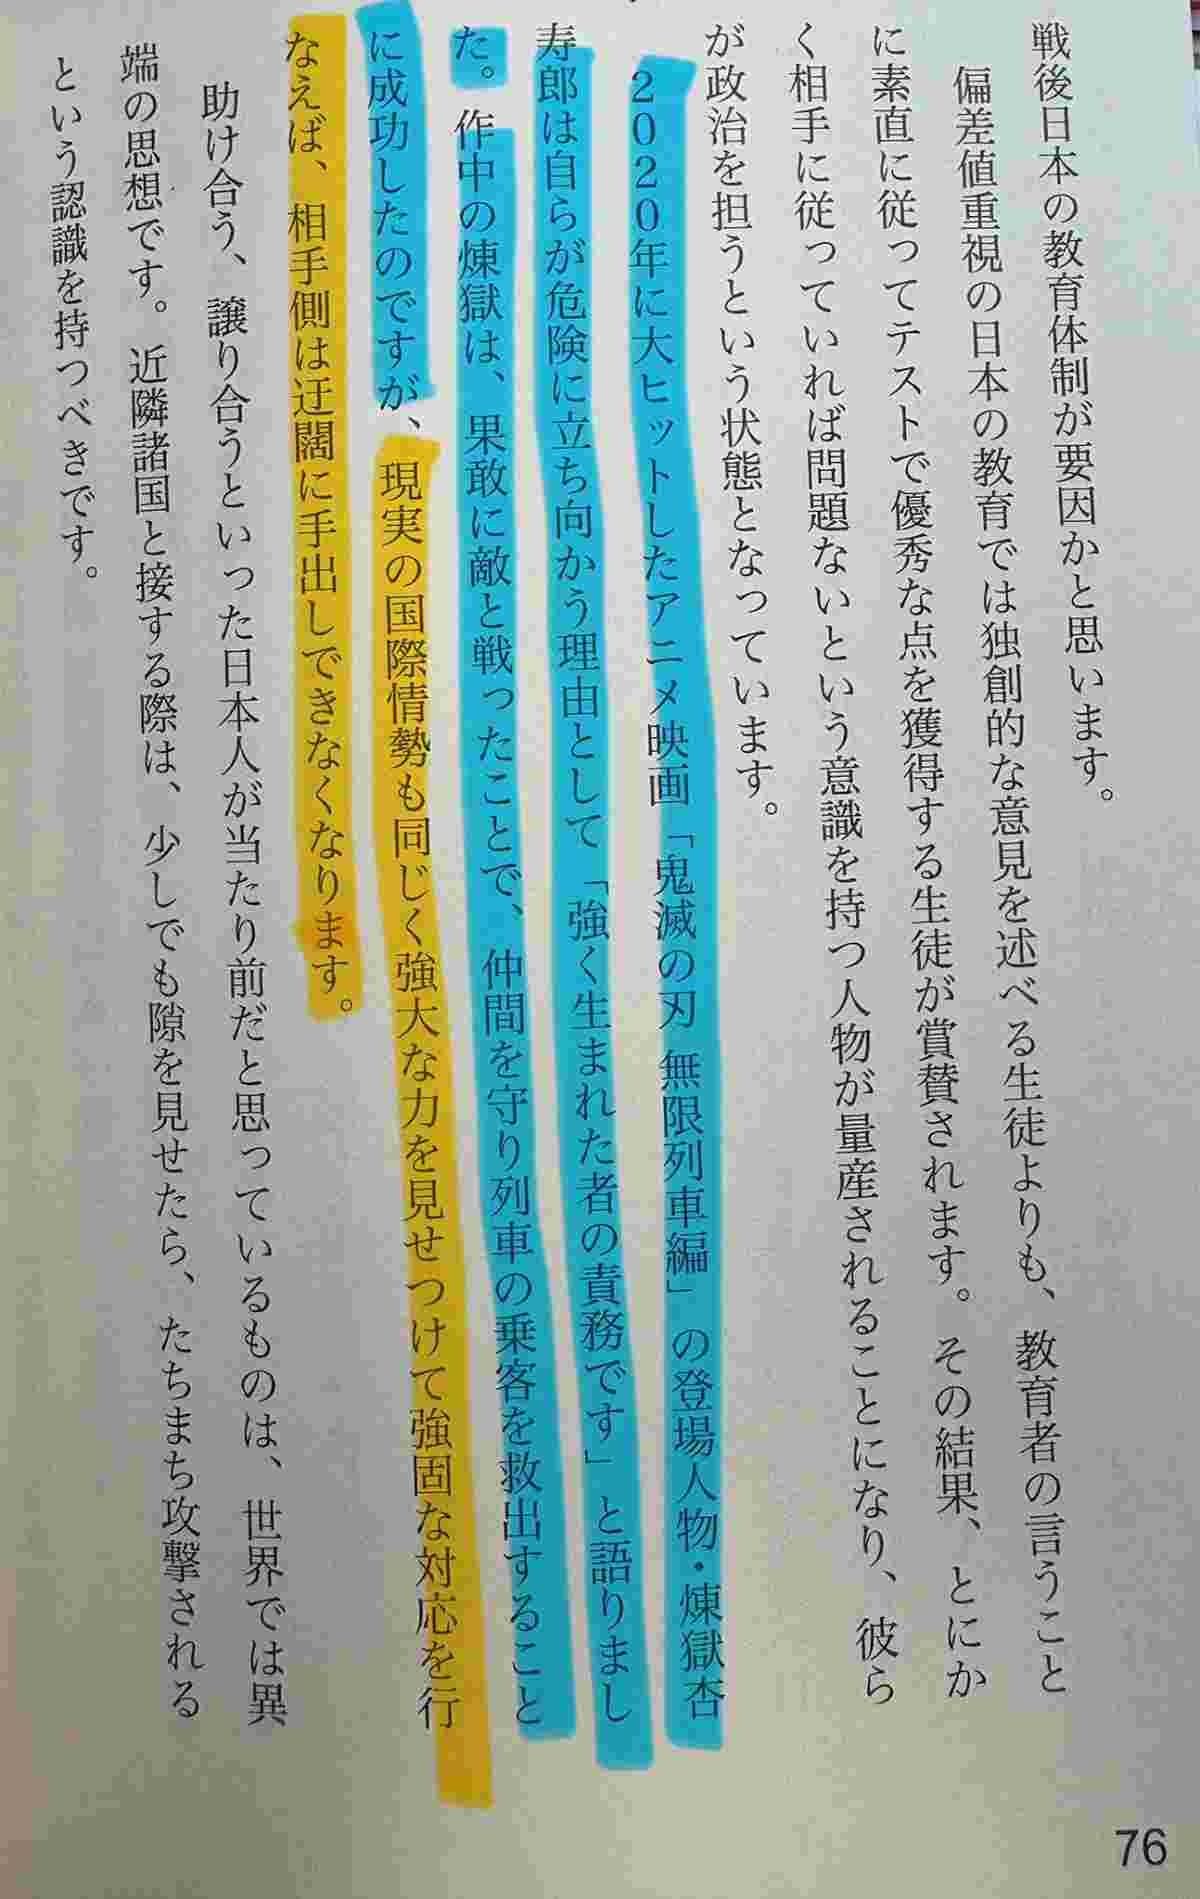 戦後日本の教育体制が要因かと思います。
偏差値重視の日本の教育では独創的な意見を述べる生徒よりも、教育者の言うこと
に素直に従ってテストで優秀な点を獲得する生徒が賞賛されます。その結果、とにか
く相手に従っていれば問題ないという意識を持つ人物が量産されることになり、彼ら
が政治を担うという状態となっています。
2020年に大ヒットしたアニメ映画「鬼滅の刃 無限列車編」の登場人物・煉獄杏
寿郎は自らが危険に立ち向かう理由として「強く生まれた者の責務です」と語りまし
た。作中の煉獄は、果敢に敵と戦ったことで、仲間を守り列車の乗客を救出すること
に成功したのですが、現実の国際情勢も同じく強大な力を見せつけて強固な対応を行
なえば、相手側は迂闊に手出しできなくなります。
助け合う、譲り合うといった日本人が当たり前だと思っているものは、世界では異
端の思想です。近隣諸国と接する際は、少しでも隙を見せたら、たちまち攻撃される
という認識を持つべきです。
76